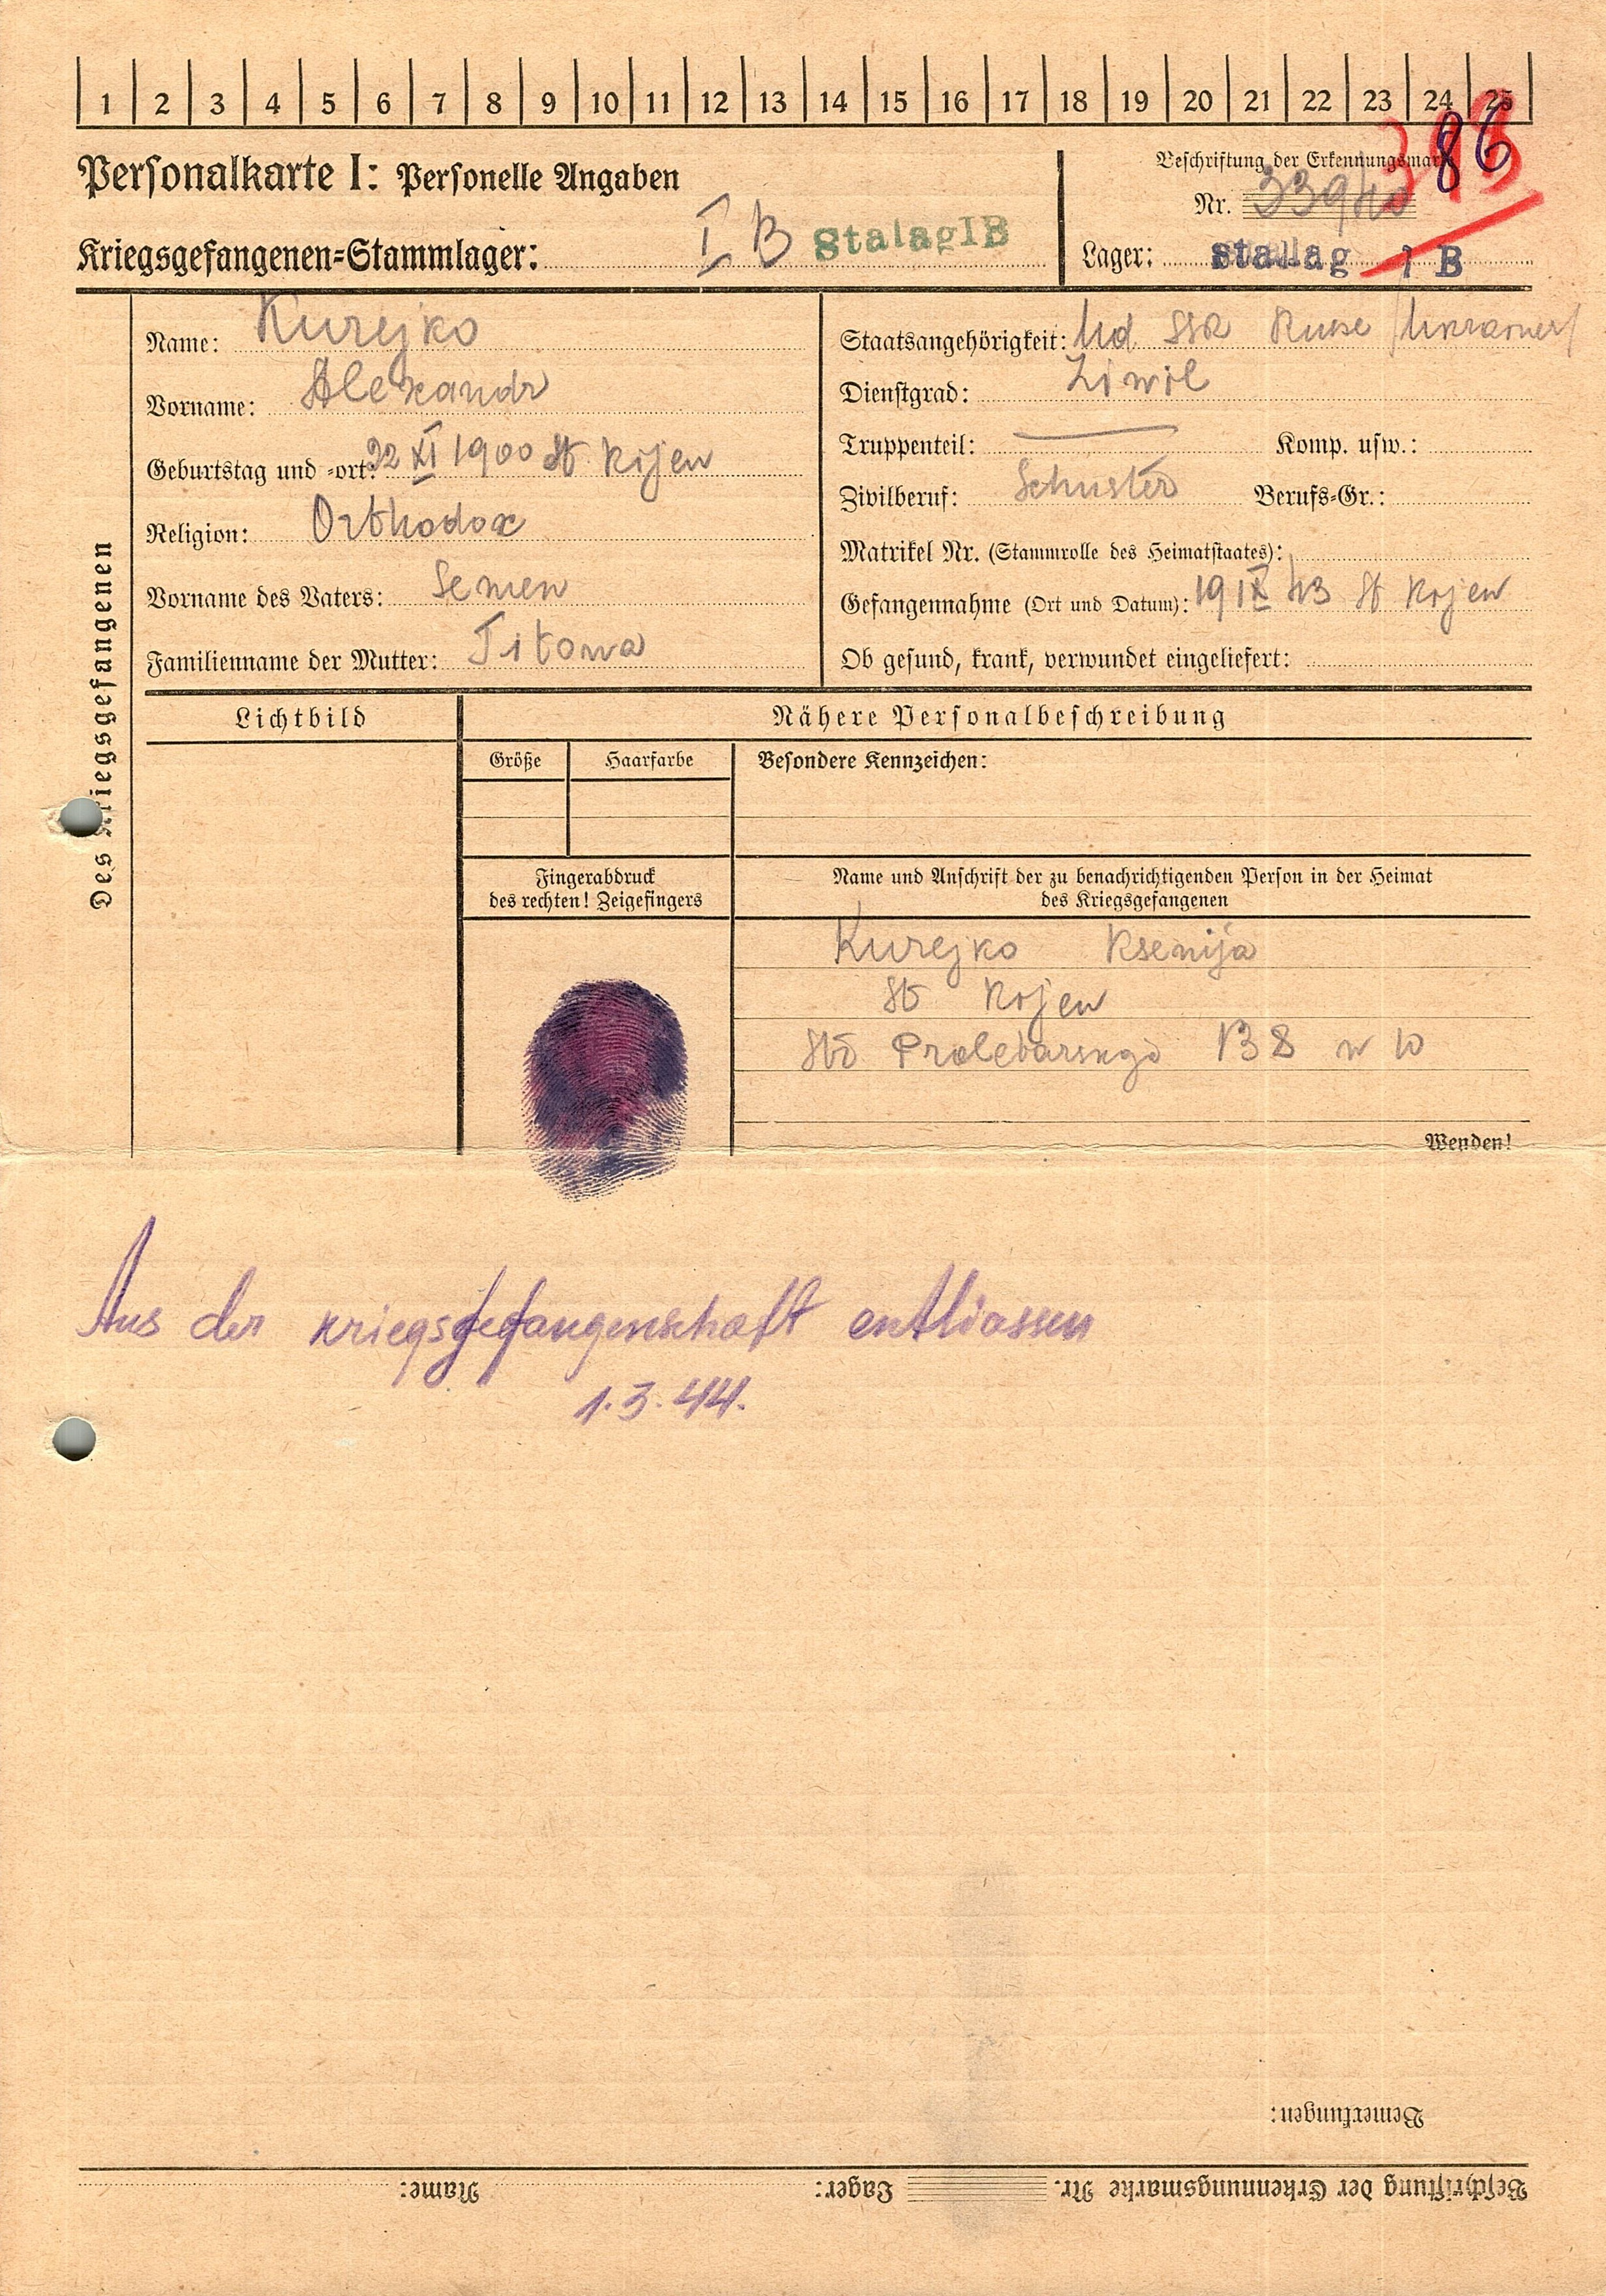 1 2 3 4 5 6 7 8 9 10 11 12 13 14 15 16 17 18 19 20 21 22 23 24 25
Personalkarte I: Personelle Angaben
Beschriftung der Erkennungsmarke
86
Nr. 339
Kriegsgefangenen-Stammlager: I B Stalag IB
Lager: Stalag I B
Des Kriegsgefangenen
Name: Kurejko
Vorname: Alexandr
Geburtstag und -ort: 22 XI 1900 St Kijew
Religion: Orthodox
Vorname des Vaters: Semen
Familienname der Mutter: Titowa
Staatsangehörigkeit: Ud SSR Russe /Ukrainer/
Dienstgrad: Ziwil
Truppenteil: Komp. usw.:
Zivilberuf: Schuster Berufs-Gr.:
Matrikel Nr. (Stammrolle des Heimatstaates):
Gefangennahme (Ort und Datum): 19 IX 43 St Kijew
Ob gesund, krank, verwundet eingeliefert:
Lichtbild
Nähere Personalbeschreibung
Größe
Haarfarbe
Besondere Kennzeichen:
Fingerabdruck
des rechten! Zeigefingers
Name und Anschrift der zu benachrichtigenden Person in der Heimat
des Kriegsgefangenen
Kurejko Ksenija
St Kijew
Proletarskaja w 10
Wenden!
Aus der Kriegsgefangenschaft entliassen
1.3.44.
Bemerkungen:
Beschriftung der Erkennungsmarke Nr. Lager: Name: